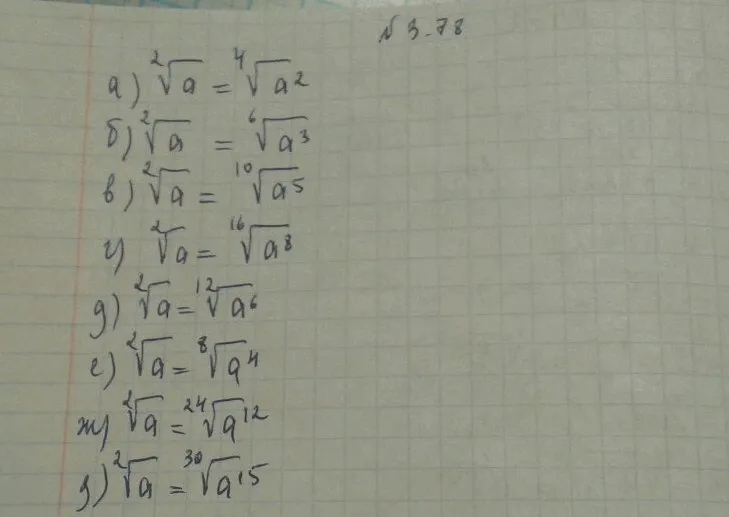 № 3.78
а) ²√a = ⁴√a²
б) ²√a = ⁶√a³
в) ²√a = ¹⁰√a⁵
г) ²√a = ¹⁶√a⁸
д) ²√a = ¹²√a⁶
е) ²√a = ⁸√a⁴
ж) ²√a = ²⁴√a¹²
з) ²√a = ³⁰√a¹⁵